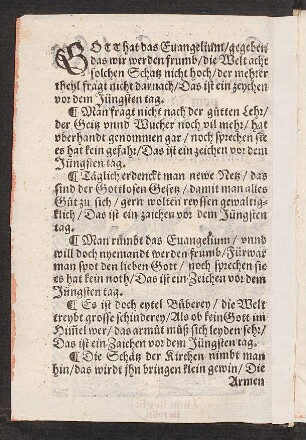 GOtt hat das Euangelium/gegeben
das wir werden frumb/die Welt acht
solchen Schatz nicht hoch/der mehter
theyl fragt nicht darnach/Das ist ein zeychen
vor dem Jüngsten tag.
¶ Man fragt nicht nach der gütten Lehr/
der Geitz vnnd Wücher noch vil mehr/hat
vberhandt genommen gar/noch sprechen sie
es hat kein gefahr/Das ist ein zeichen vor dem
Jüngsten tag.
¶ Täglich erdenckt man newe Netz/das
sind der Gottlosen Gesetz/damit man alles
Güt zu sich/gern wolten reyssen gewaltig-
klich/Das ist ein zaichen vor dem Jüngsten
tag.
¶ Man rümbt das Euangelium/vnnd
will doch nyemandt werden frumb/Fürwar
man spot den lieben Gott/noch sprechen sie
es hat kein noth/Das ist ein Zeichen vor dem
Jüngsten tag.
¶ Es ist doch eytel Büberey/die Welt
treybt grosse schinderey/Als ob kein Gott im
Him̃el wer/das armüt müß sich leyden sehr/
Das ist ein Zaichen vor dem Jüngsten tag.
¶ Die Schätz der Kirchen nimbt man
hin/das wirdt jhn bringen klein gewin/Die
Armen